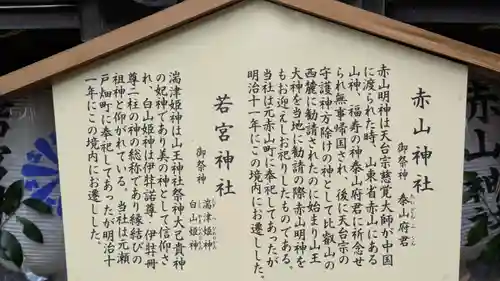 赤山神社
御祭神 泰山府君
赤山明神は天台宗慈覚大師が中国
に渡られた時、山東省赤山にある
山神、福寿の神泰山府君に祈念せ
られ無事帰国され、後に天台宗の
守護神方除けの神として比叡山の
西麓に勧請されたのに始まり山王
大神を当地に勧請の際赤山明神を
もお迎えしお祀りしたものである。
当社は元赤山町に奉祀してあったが
明治十一年にこの境内にお遷しした。
若宮神社
御祭神
湍津姫神
白山姫神
湍津姫神は山王神社祭神大己貴神
の妃神であり美の神として信仰さ
れ、白山姫神は伊弉諾尊・伊弉冊
尊二柱の神の総称であり縁結びの
祖神と仰がれている。当社は元瀬
戸畑町に奉祀してあったが明治十
一年にこの境内にお遷しした。